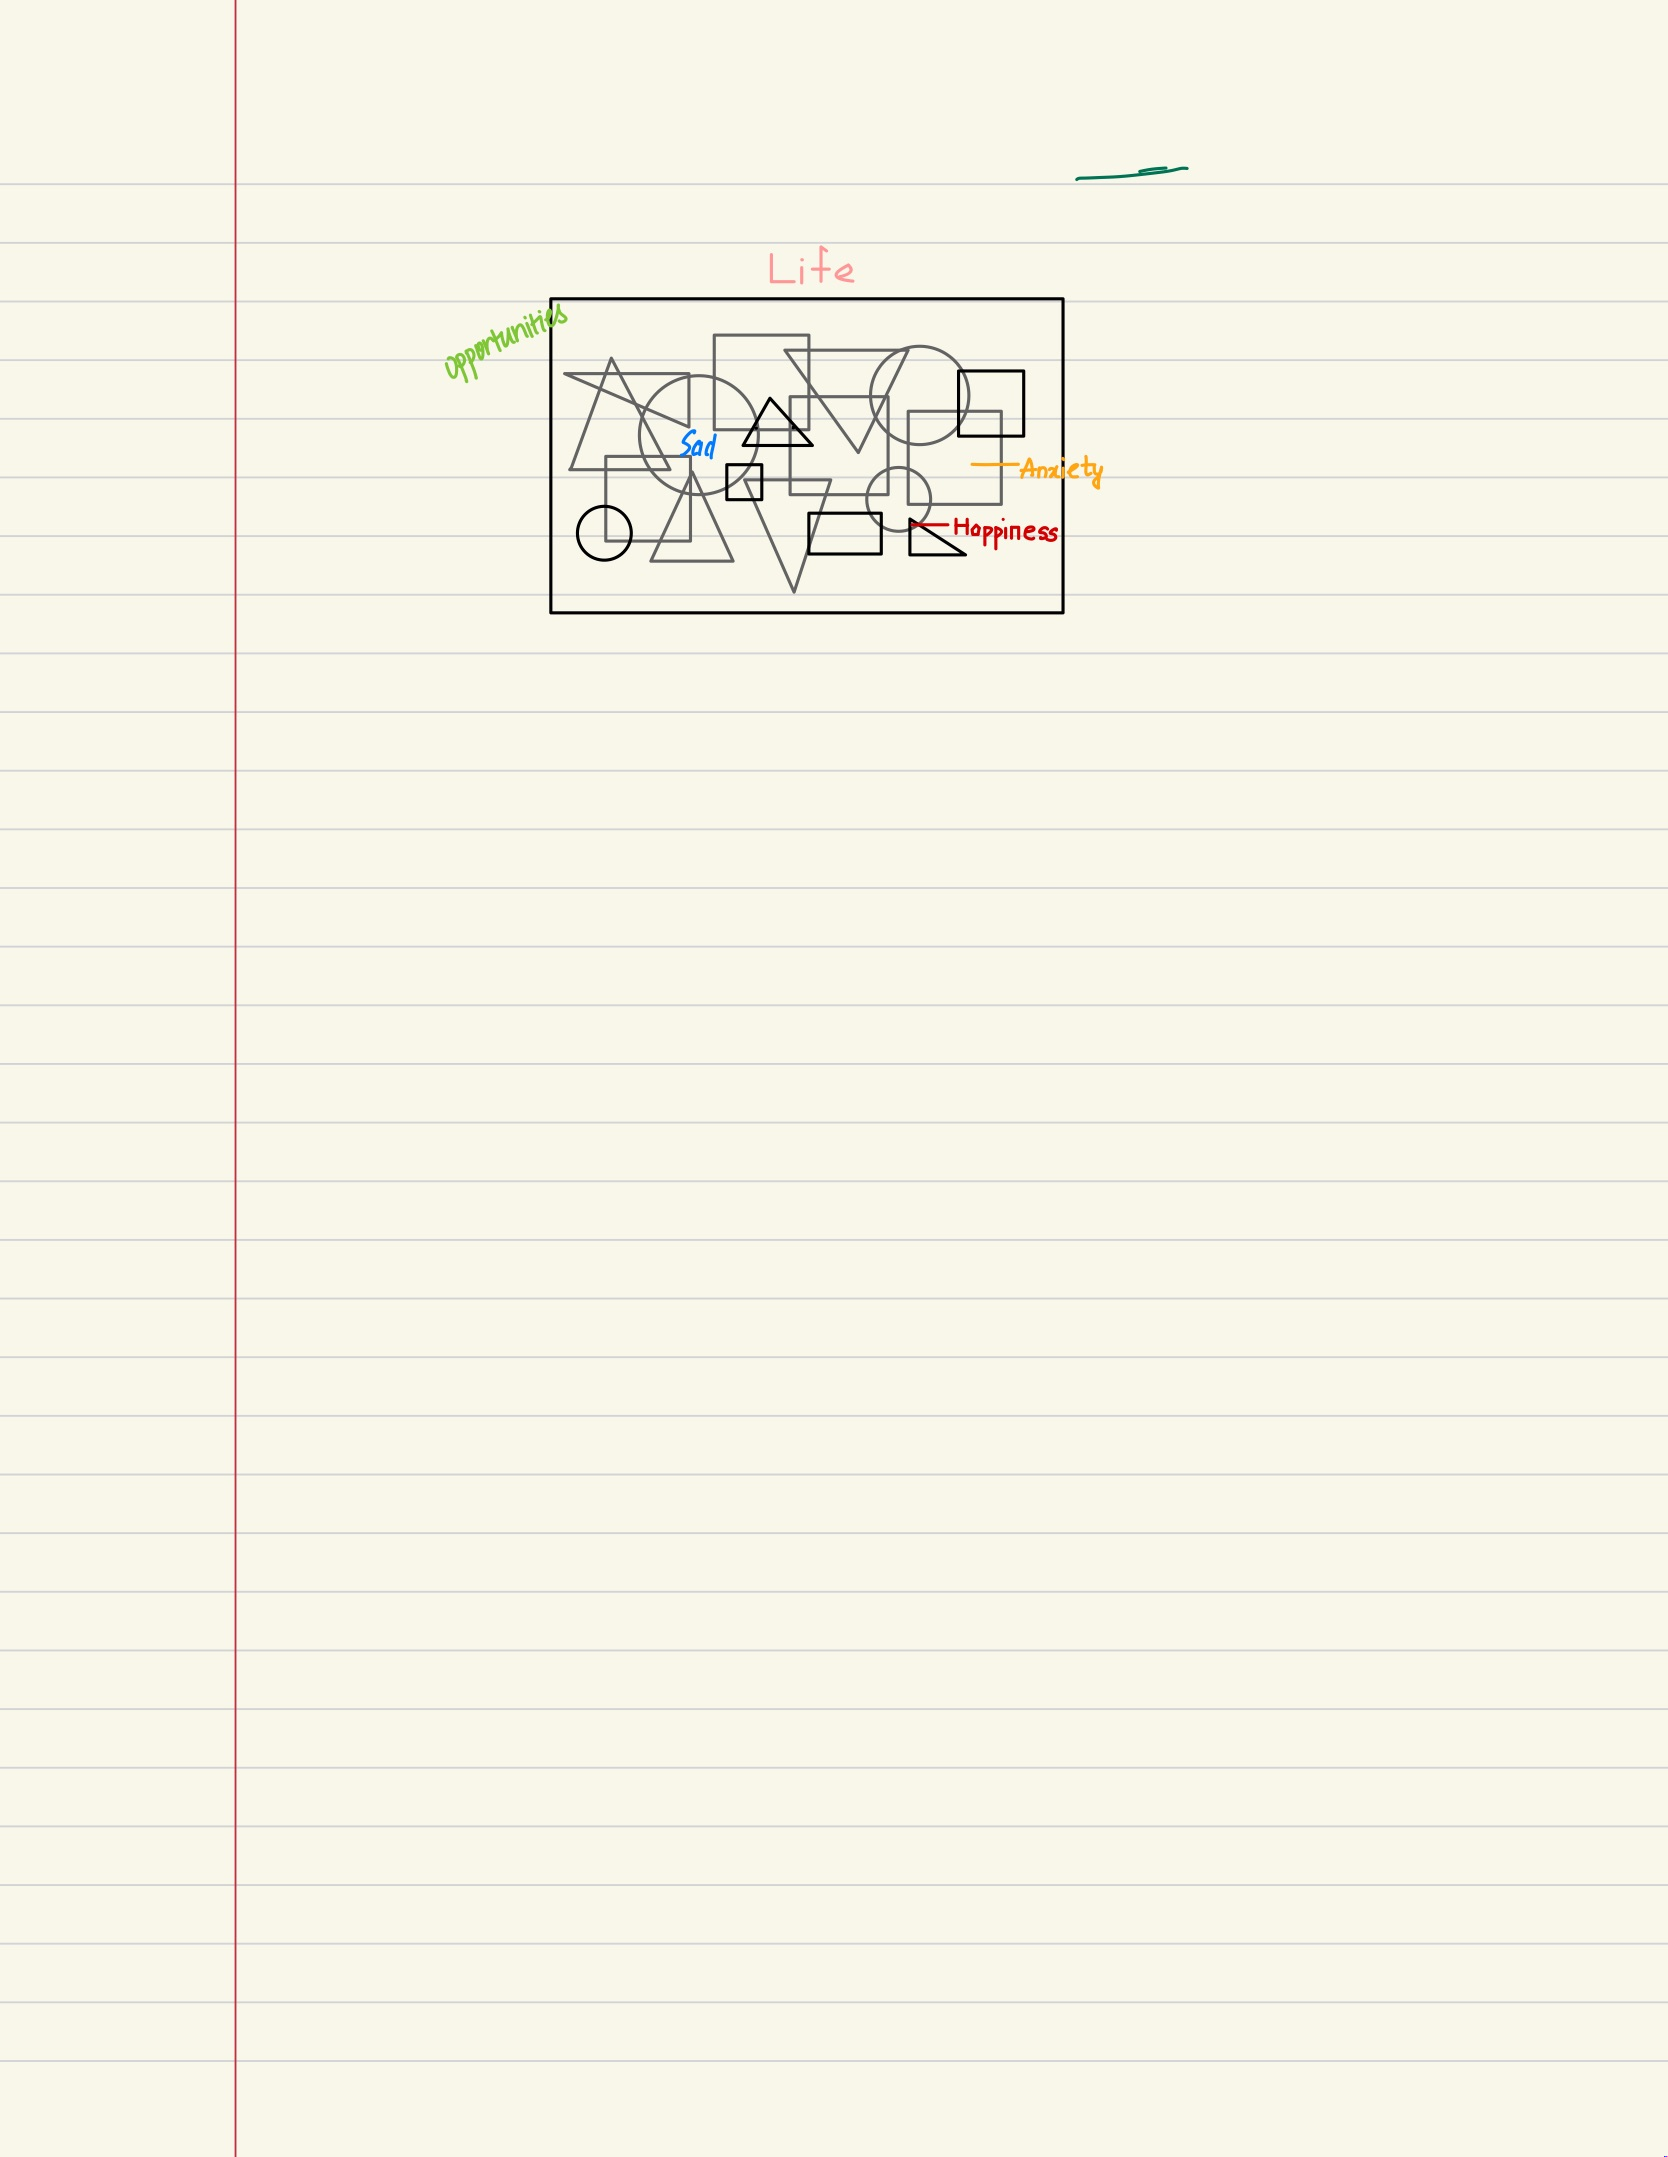 Life
Opportunities
Sad
Anxiety
Happiness